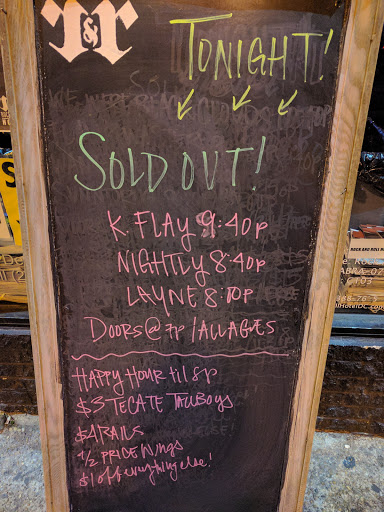 R&R
TONIGHT!
SOLD OUT!
K. FLAY 9:40P
NIGHTLY 8:40P
LAYNE 8:10P
DOORS@7P/ALL AGES
HAPPY HOUR til 8P
$3 TECATE TALLBOYS
$4 RAILS
1/2 PRICE Wings
$1 off everything else!